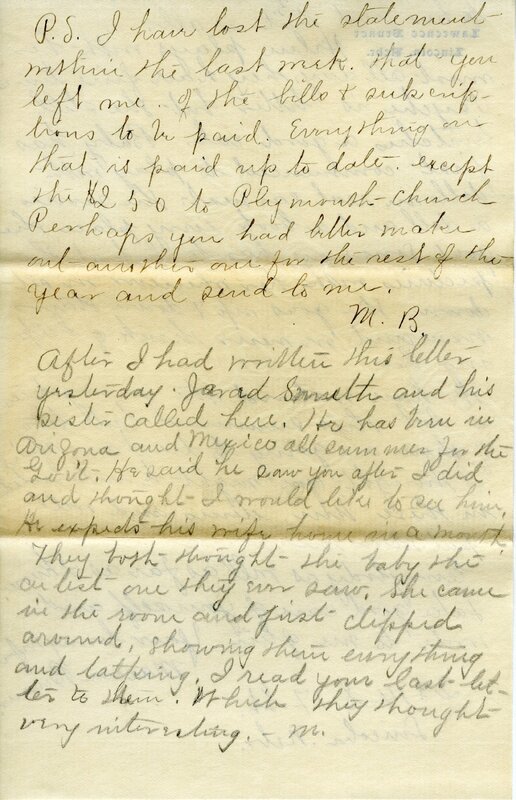 P.S. I have lost the statement
within the last week. that you
left me. of the bills & subscrip-
tions to be paid. Everything on
that is paid up to date. except
the $2 50 to Plymouth church
Perhaps you had better make
out another one for the rest of the
year and send to me.
M. B.
After I had written this letter
yesterday. Jarad Smith and his
sister called here. He has been in
Arizona and Mexico all summer for the
Gov't. He said he saw you after I did
and thought I would like to see him.
He expects his wife home in a month.
They both thought the baby the
cutest one they ever saw. She came
in the room and just clipped
around, showing them everything
and talking. I read your last let-
ter to them. Which they thought
very interesting. M.
Lawrence Bruner
Lincoln, Nebr.